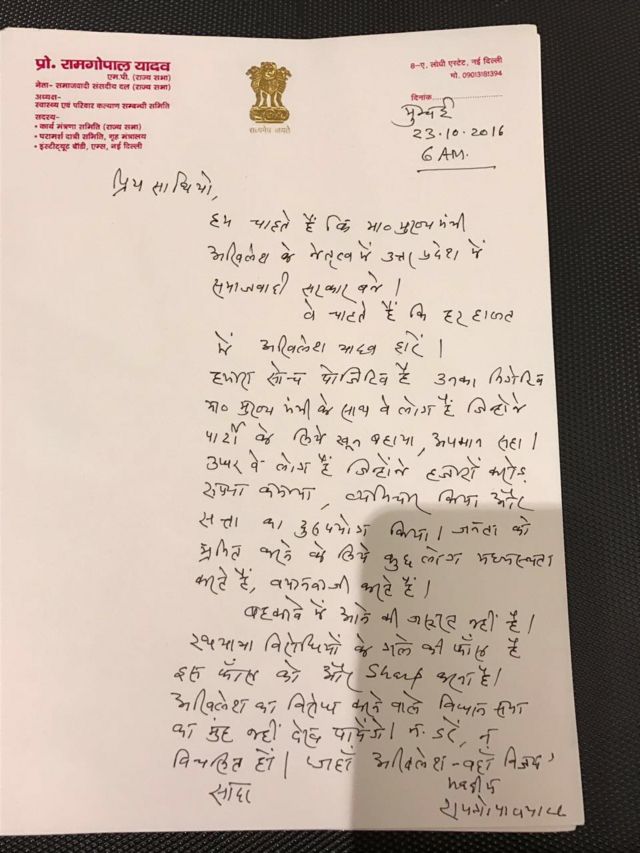 प्रो. रामगोपाल यादव
एम.पी. (राज्य सभा)
नेता- समाजवादी संसदीय दल (राज्य सभा)
अध्यक्ष-
स्वास्थ्य एवं परिवार कल्याण सम्बन्धी समिति
सदस्य-
• कार्य मंत्रणा समिति (राज्य सभा)
• परामर्श दात्री समिति, गृह मंत्रालय
• इंस्टीट्यूट बॉडी, एम्स, नई दिल्ली
सत्यमेव जयते
8-ए, लोधी एस्टेट, नई दिल्ली
मो. 09013181394
दिनांक
मुम्बई
23.10.2016
6 AM.
प्रिय साथियो,
हम चाहते हैं कि मा० मुख्य मंत्री
अखिलेश के नेतृत्व में उत्तर प्रदेश में
समाजवादी सरकार बने।
वे चाहते हैं कि हर हालत
में अखिलेश यादव हारें।
हमारी सोच पोजिटिव है उनकी निगेटिव
मा० मुख्य मंत्री के साथ वे लोग हैं जिन्होंने
पार्टी के लिये खून बहाया, अपमान सहा।
उधर वे लोग हैं जिन्होंने हजारों करोड़
रुपया कमाया, व्यभिचार किया और
सत्ता का दुरुपयोग किया। जनता को
भ्रमित करने के लिये कुछ लोग मध्यस्थता
करते हैं, बयानबाजी करते हैं।
बहकावे में आने की जरूरत नहीं है।
रथयात्रा विरोधियों के गले की फाँस है
इस फाँस को और Sharp करना है।
अखिलेश का विरोध करने वाले विधान सभा
का मुंह नहीं देख पायेंगे। न डरें, न
विचलित हों। जहाँ अखिलेश - वहाँ विजय
सादर
रामगोपाल यादव